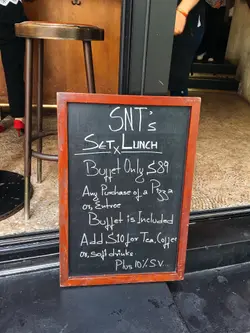 SNT's
SET LUNCH
Buffet Only $89
Any Purchase of a Pizza
or, Entree
Buffet is Included
Add $10 for Tea, Coffee
or, soft drinks.
Plus 10% S.V.